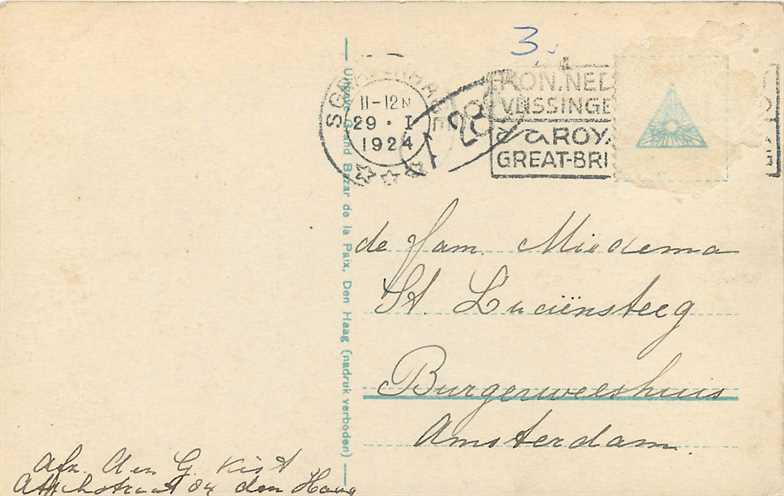 3,-
'S GRAVENHAGE
11-12 N
29 · I
1924
28
KON. NED
VLISSINGE
ROY
GREAT-BRI
Uitgave Grand Bazar de la Paix, Den Haag (nadruk verboden)
de fam. Miedema
St. Luciënsteeg
Burgerweeshuis
Amsterdam.
Afz. A en G. Kist
den Haag